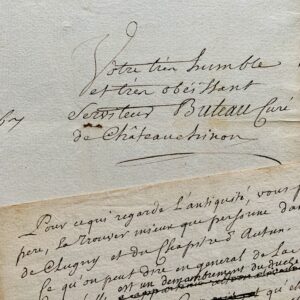 Votre très humble
et très obéissant
Serviteur Buteau Curé
de Châteauchinon
Pour ce qui regarde L'antiquité, vous
pere, la trouver mieux que personne dan
de Clugny et du Chapitre d'Autun.
Ce qu'on peut dire en general de
est un demembrement du duché